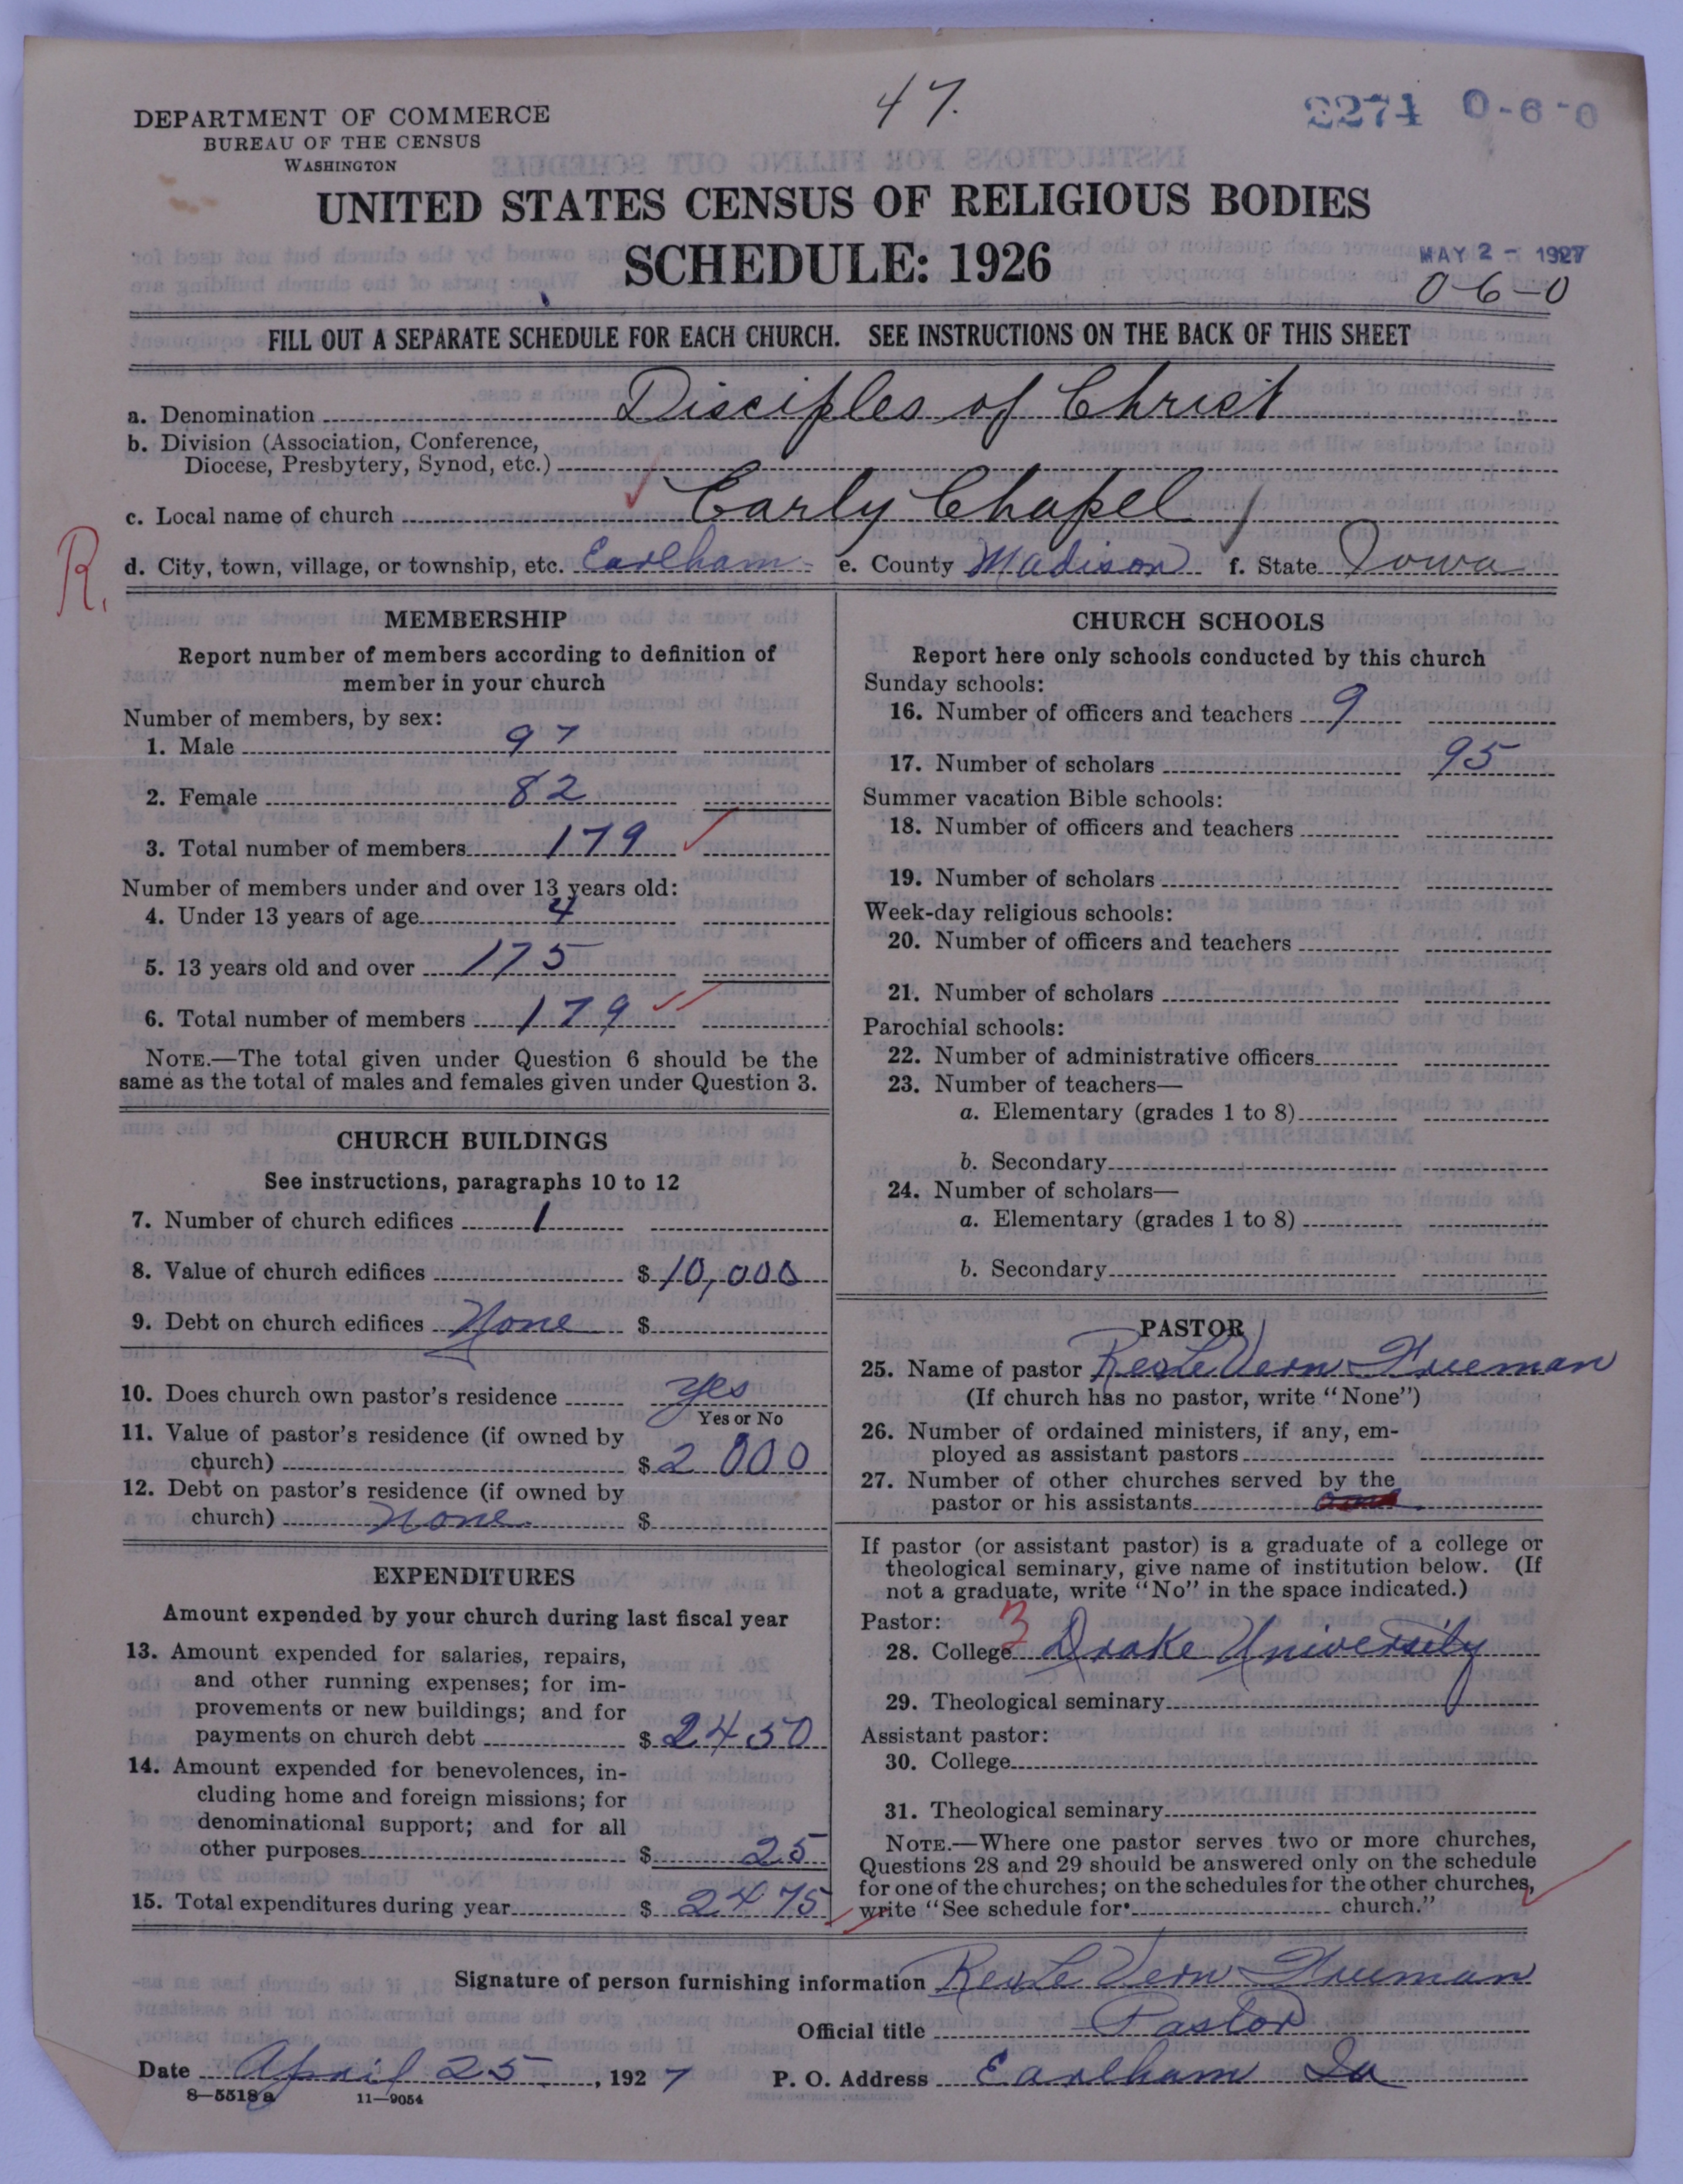 47.
2274 0-6-0
DEPARTMENT OF COMMERCE
BUREAU OF THE CENSUS
WASHINGTON
UNITED STATES CENSUS OF RELIGIOUS BODIES
SCHEDULE: 1926
MAY 2 - 1927
0-6-0
FILL OUT A SEPARATE SCHEDULE FOR EACH CHURCH. SEE INSTRUCTIONS ON THE BACK OF THIS SHEET
a. Denomination Disciples of Christ
b. Division (Association, Conference,
Diocese, Presbytery, Synod, etc.)
c. Local name of church Early Chapel
R.
d. City, town, village, or township, etc. Earlham e. County Madison f. State Iowa
MEMBERSHIP
Report number of members according to definition of
member in your church
Number of members, by sex:
1. Male 97
2. Female 82
3. Total number of members 179
Number of members under and over 13 years old:
4. Under 13 years of age 4
5. 13 years old and over 175
6. Total number of members 179
NOTE.—The total given under Question 6 should be the
same as the total of males and females given under Question 3.
CHURCH BUILDINGS
See instructions, paragraphs 10 to 12
7. Number of church edifices 1
8. Value of church edifices $10,000
9. Debt on church edifices None $
10. Does church own pastor's residence yes
Yes or No
11. Value of pastor's residence (if owned by
church) $2000
12. Debt on pastor's residence (if owned by
church) none $
EXPENDITURES
Amount expended by your church during last fiscal year
13. Amount expended for salaries, repairs,
and other running expenses; for im-
provements or new buildings; and for
payments on church debt $2450
14. Amount expended for benevolences, in-
cluding home and foreign missions; for
denominational support; and for all
other purposes $25
15. Total expenditures during year $2475
CHURCH SCHOOLS
Report here only schools conducted by this church
Sunday schools:
16. Number of officers and teachers 9
17. Number of scholars 95
Summer vacation Bible schools:
18. Number of officers and teachers
19. Number of scholars
Week-day religious schools:
20. Number of officers and teachers
21. Number of scholars
Parochial schools:
22. Number of administrative officers
23. Number of teachers—
a. Elementary (grades 1 to 8)
b. Secondary
24. Number of scholars—
a. Elementary (grades 1 to 8)
b. Secondary
PASTOR
25. Name of pastor Rev Le Vern Freeman
(If church has no pastor, write "None")
26. Number of ordained ministers, if any, em-
ployed as assistant pastors
27. Number of other churches served by the
pastor or his assistants
If pastor (or assistant pastor) is a graduate of a college or
theological seminary, give name of institution below. (If
not a graduate, write "No" in the space indicated.)
Pastor:
28. College 3 Drake University
29. Theological seminary
Assistant pastor:
30. College
31. Theological seminary
NOTE.—Where one pastor serves two or more churches,
Questions 28 and 29 should be answered only on the schedule
for one of the churches; on the schedules for the other churches,
write "See schedule for church."
Signature of person furnishing information Rev Le Vern Freeman
Official title Pastor
Date April 25, 1927 P. O. Address Earlham Ia
8—5518 a 11—9054